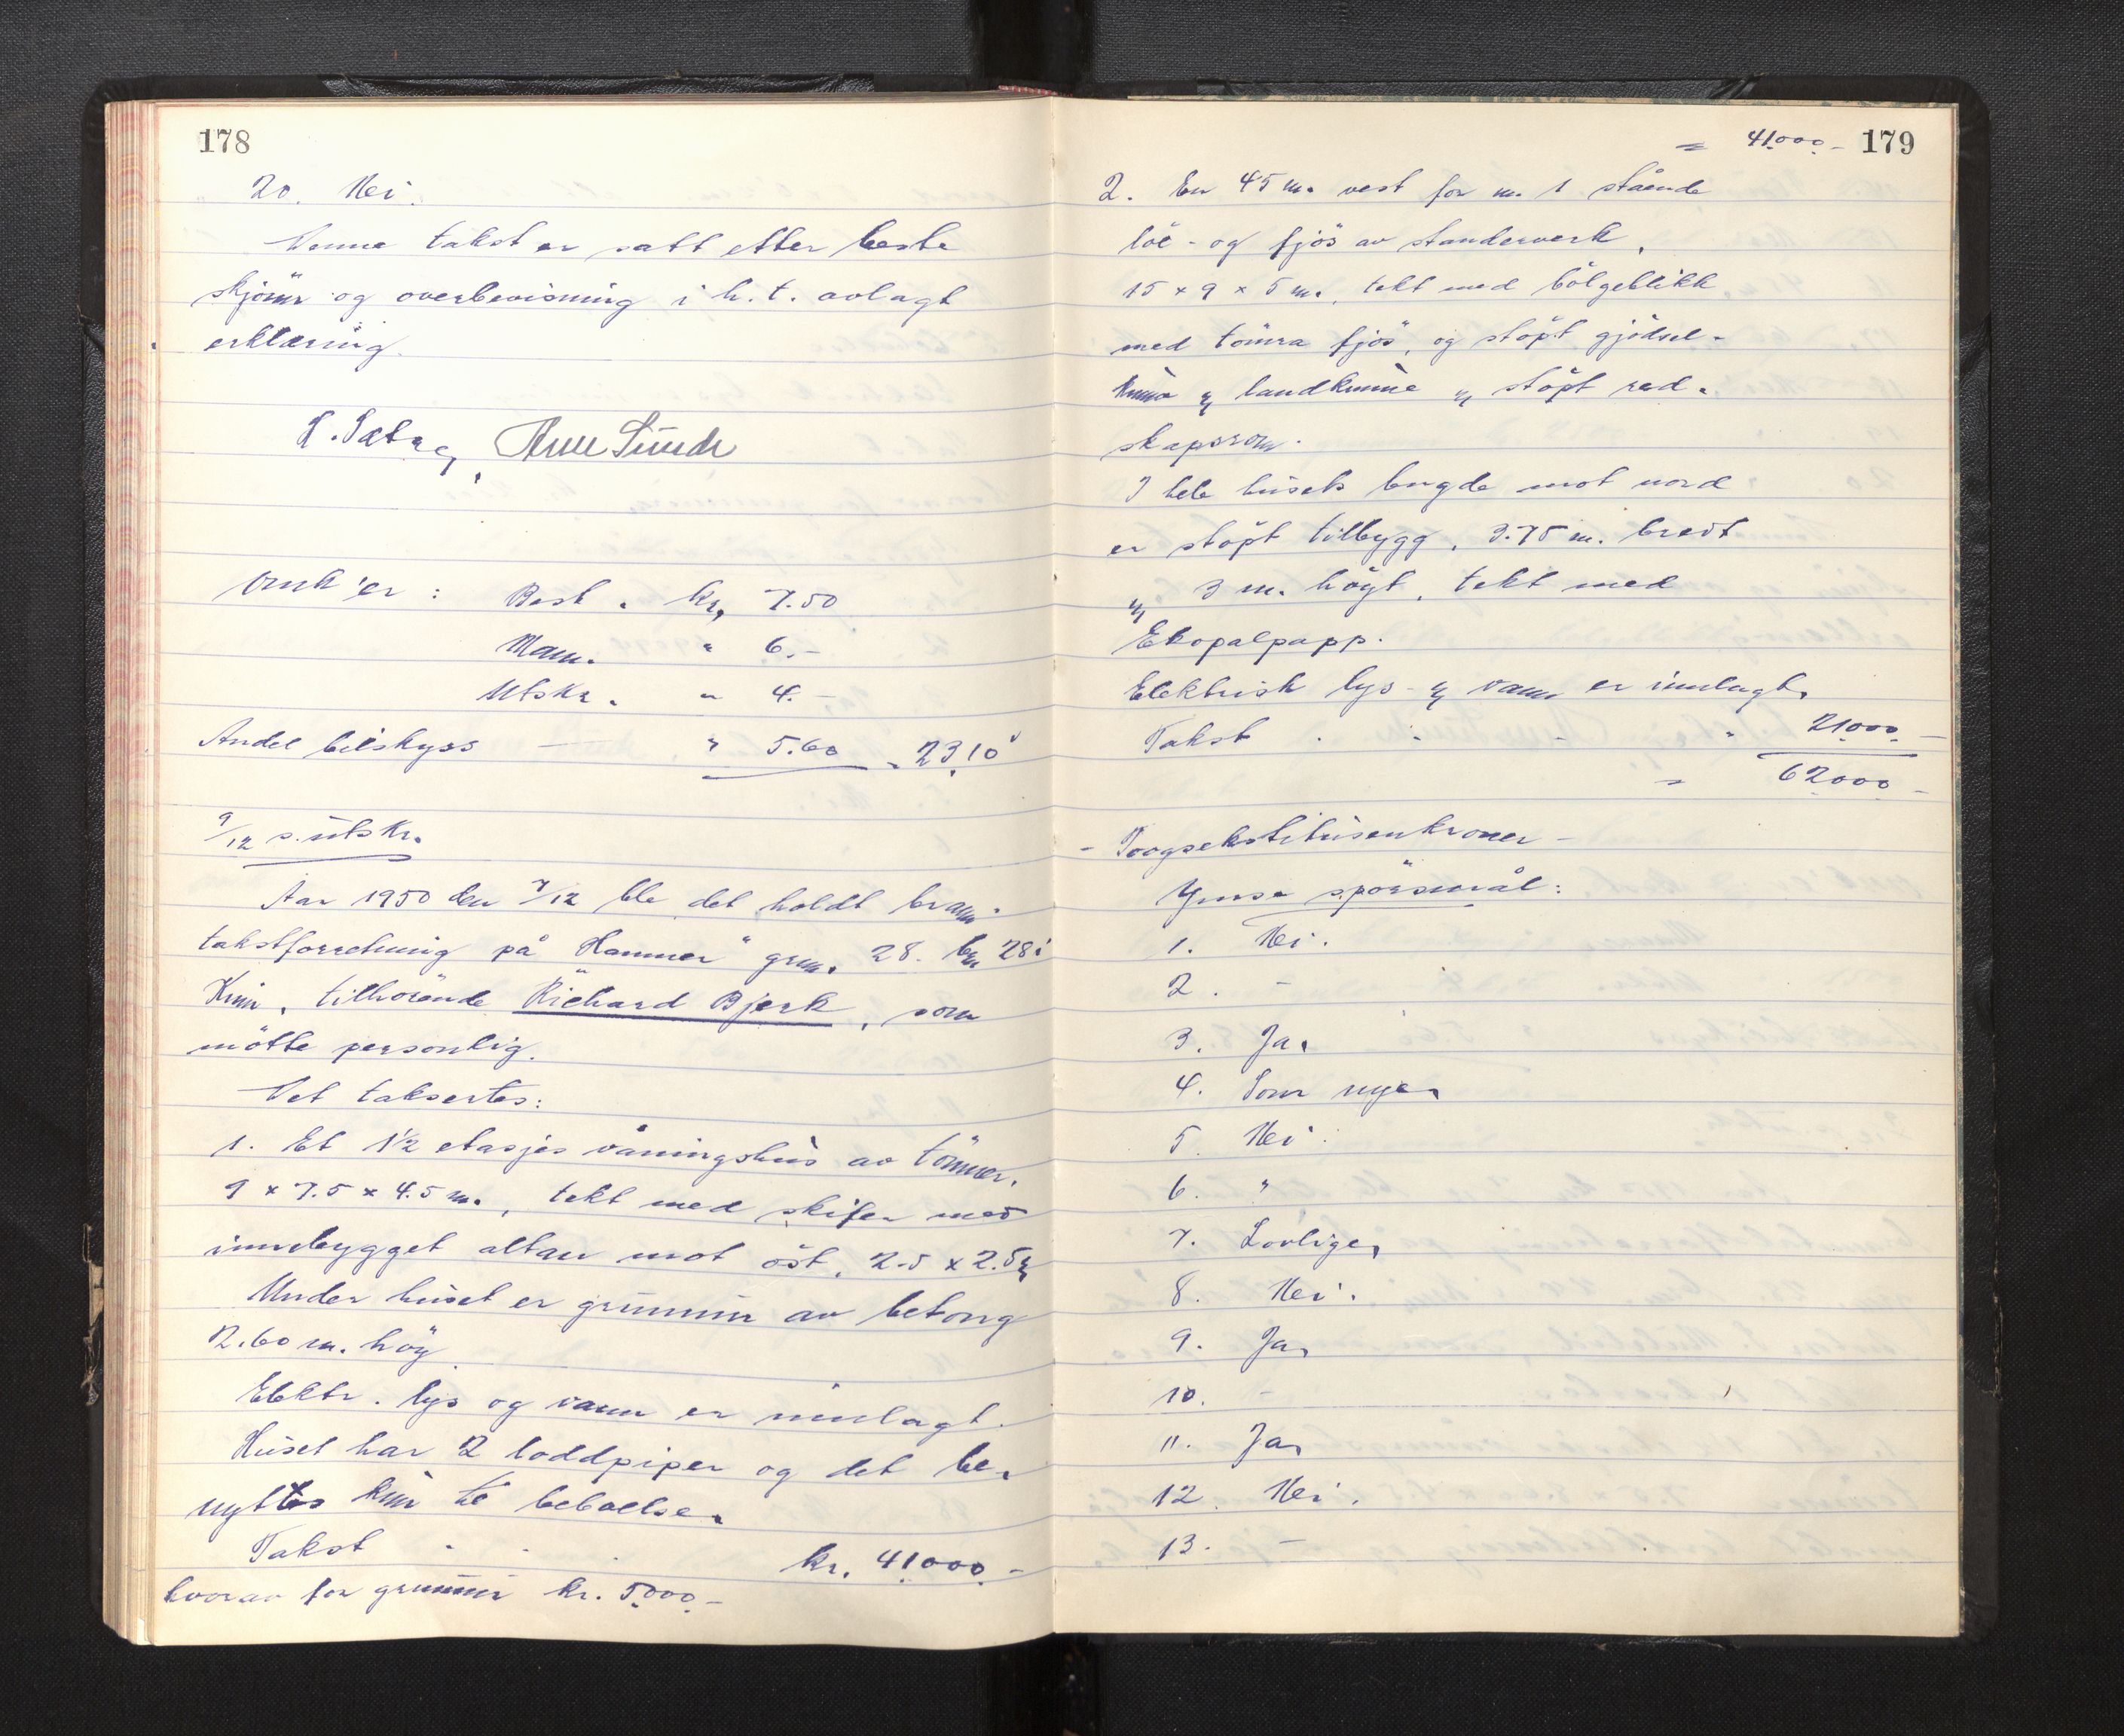 178
20. Nei.
Denne takst er satt etter beste
skjönn og overbevisning i h.t. avlagt
erklæring.
Arne Sunde
Omk'er : Best. kr. 7.50
Mann. " 6.-
Utskr. " 4.-
Andel bilskyss — " 5.60 = 23,10
9/12 s. utskr.
Aar 1950 den 7/12 ble det holdt brann-
takstforretning på "Hammer" grnr. 28. brn 28 i
Kinn, tilhörende Richard Bjerk, som
mötte personlig.
Det taksertes:
1. Et 1½ etasjes våningshus av tömmer,
9 x 7.5 x 4.5 m., tekt med skifer med
innebygget altan mot öst, 2.5 x 2.5 m
Under huset er grunnmur av betong
2.60 m. höy
Elektr. lys og vann er innlagt.
Huset har 2 loddpiper og det be-
nyttes kun til beboelse.
Takst . . . kr. 41.000.-
hvorav for grunnmur kr. 5.000.-
= 41.000.- 179
2. En 45 m. vest for nr. 1 stående
löe- og fjös av standerverk,
15 x 9 x 5 m., tekt med bölgeblikk,
med tömra fjös, og stöpt gjödsel-
kum og landkumme og stöpt red-
skapsrom.
I hele husets lengde mot nord
er stöpt tilbygg, 3.75 m. bredt
og 3 m. höyt, tekt med
Ekopalpapp.
Elektrisk lys- og vann er innlagt.
Takst . . - " 21.000.-
= 62.000.-
- Toogsekstitusenkroner -
Ymse spörsmål:
1. Nei.
2. -
3. Ja.
4. Som nye.
5. Nei.
6. "
7. Lovlige.
8. Nei.
9. Ja.
10. -
11. Ja.
12. Nei.
13. -